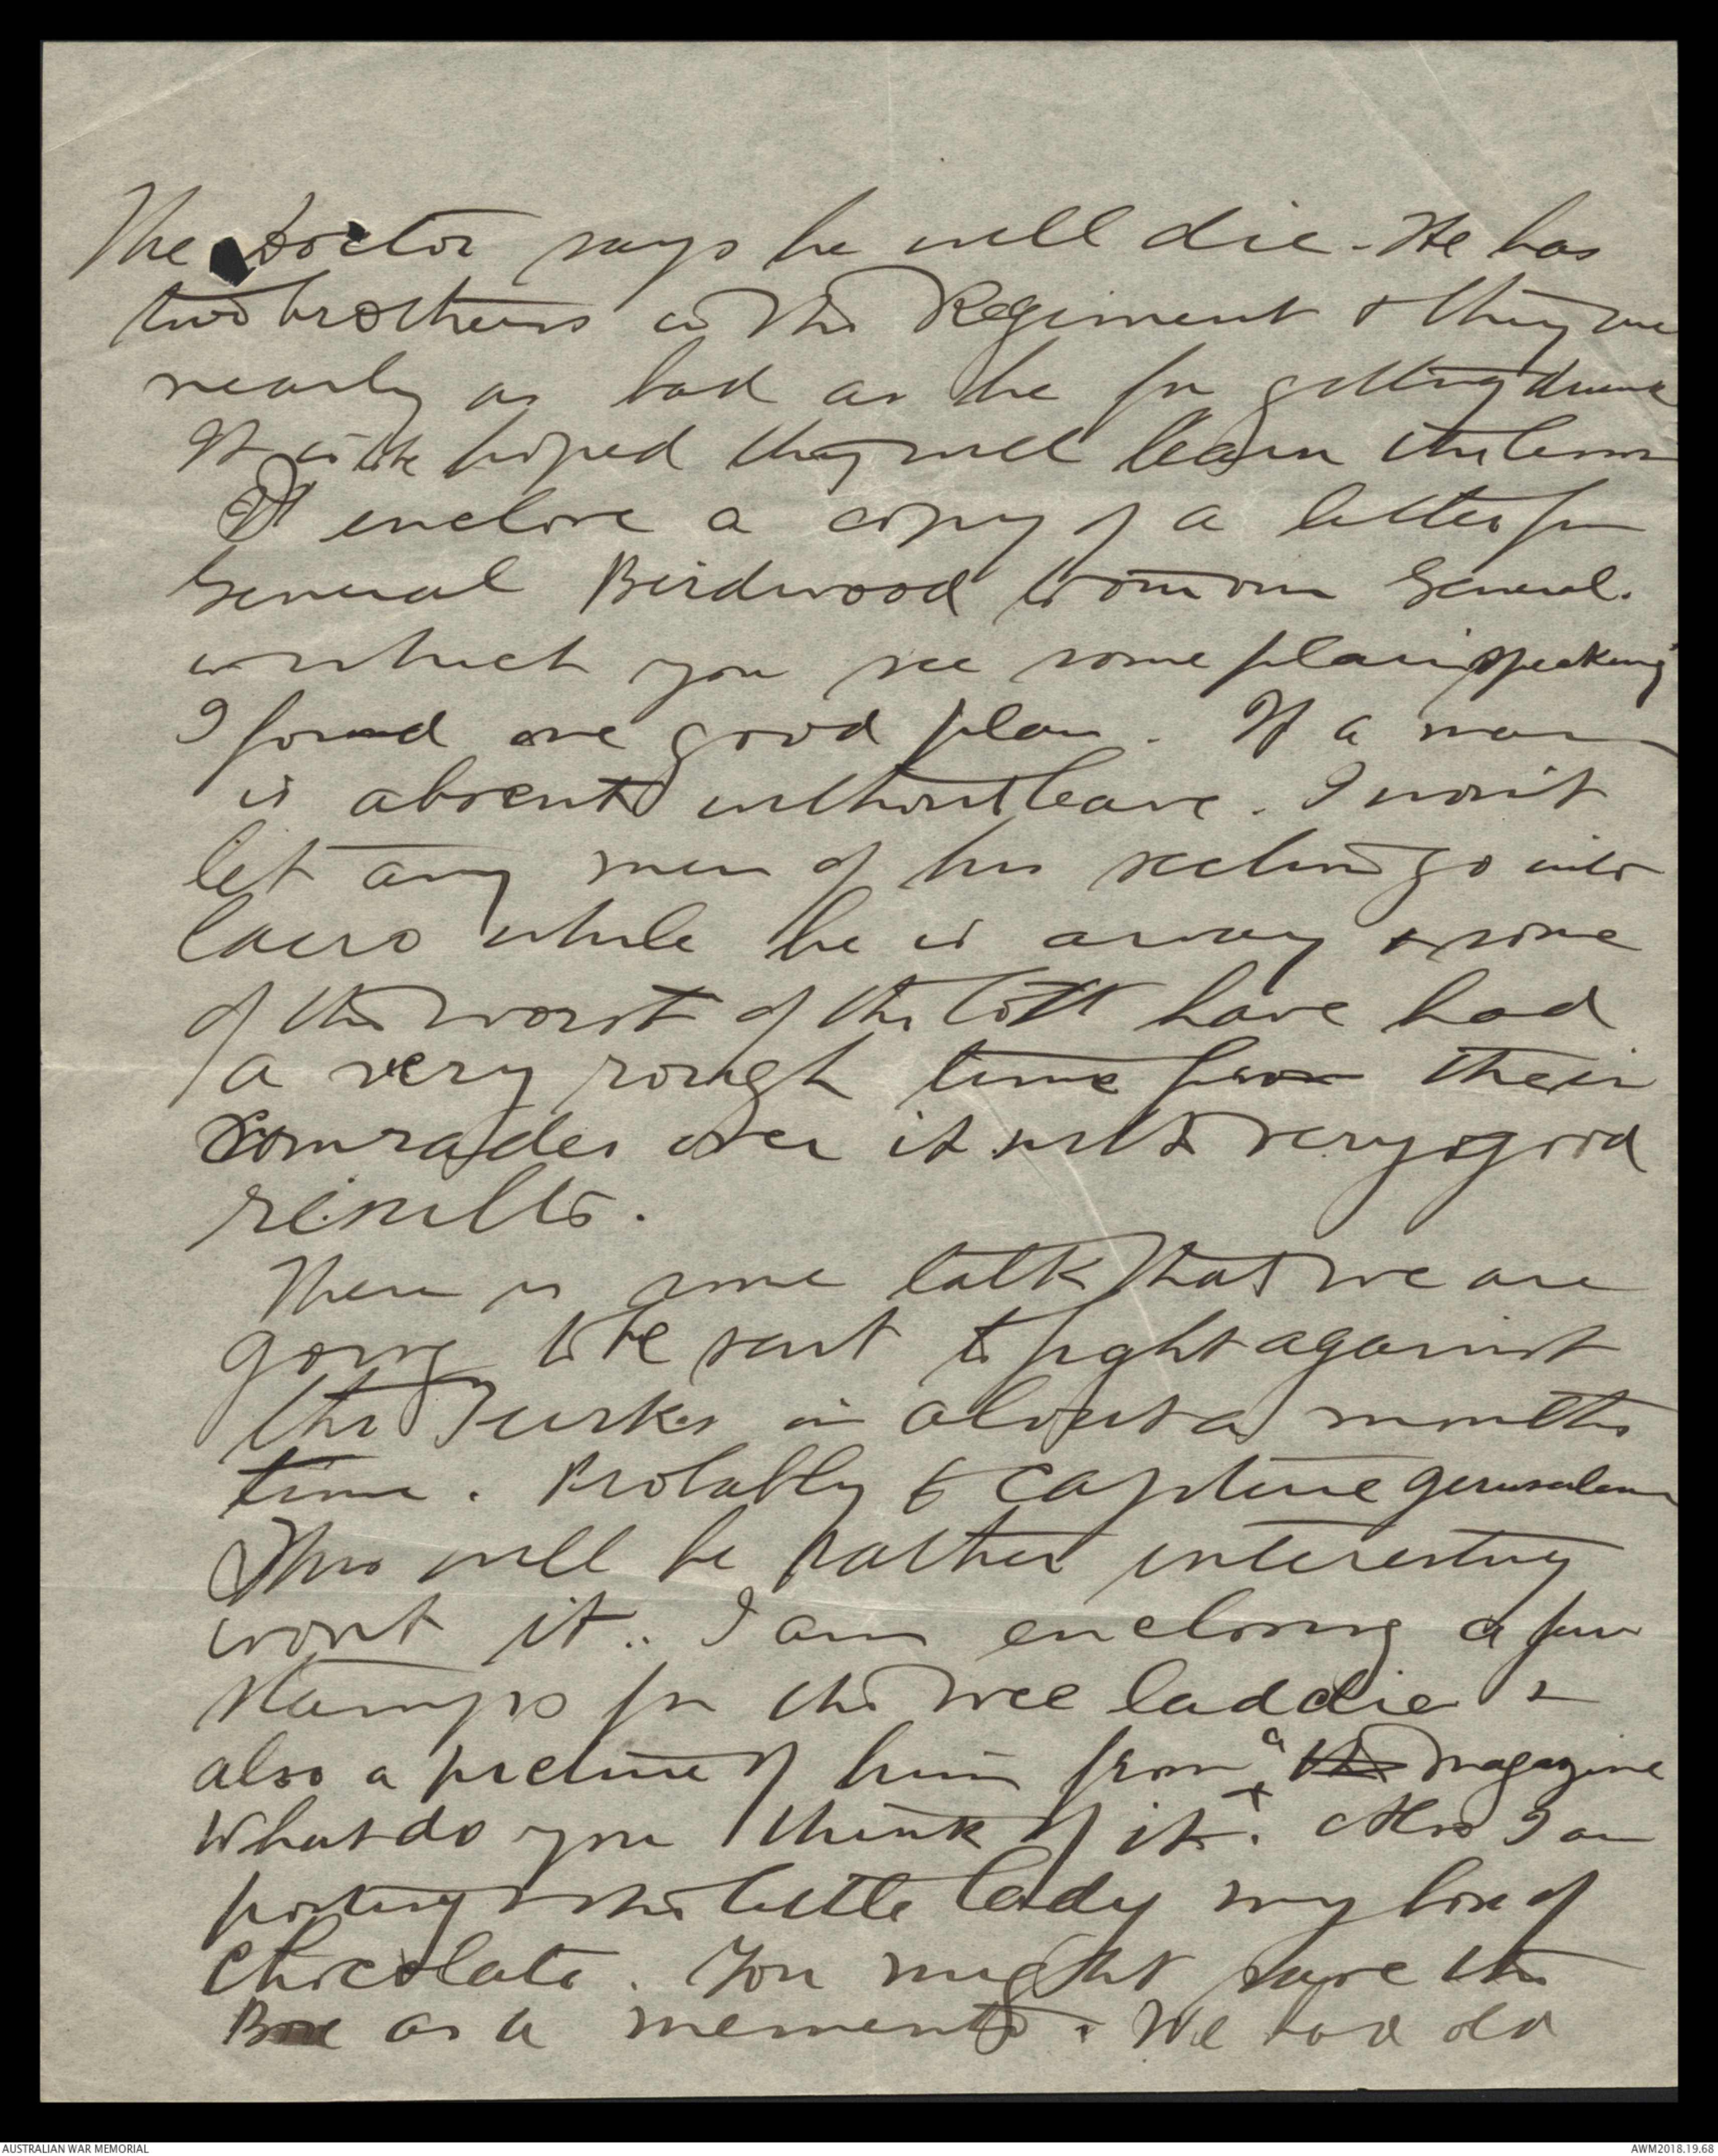 The Doctor says he will die - He has
two brothers in this Regiment & they are
nearly as bad as he for getting drunk
It is to be hoped they will learn the lesson
I enclose a copy of a letter from
General Birdwood to our General.
in which you see some plain speaking
I found one good plan. If a man
is absent without leave. I won't
let any men of his section go into
Cairo while he is away & some
of the worst of the lott have had
a very rough time from their
comrades over it with very good
results.
There is some talk that we are
going to be sent to fight against
the Turks in about a months
time. Probably to capture Jerusalem
This will be rather interesting
wont it.. I am enclosing a few
stamps for the wee laddie &
also a picture of him from a the magazine
What do you think of it. Also I am
posting the little lady my box of
chocolate. You might save the
Box as a memento. We had old
AUSTRALIAN WAR MEMORIAL
AWM2018.19.68